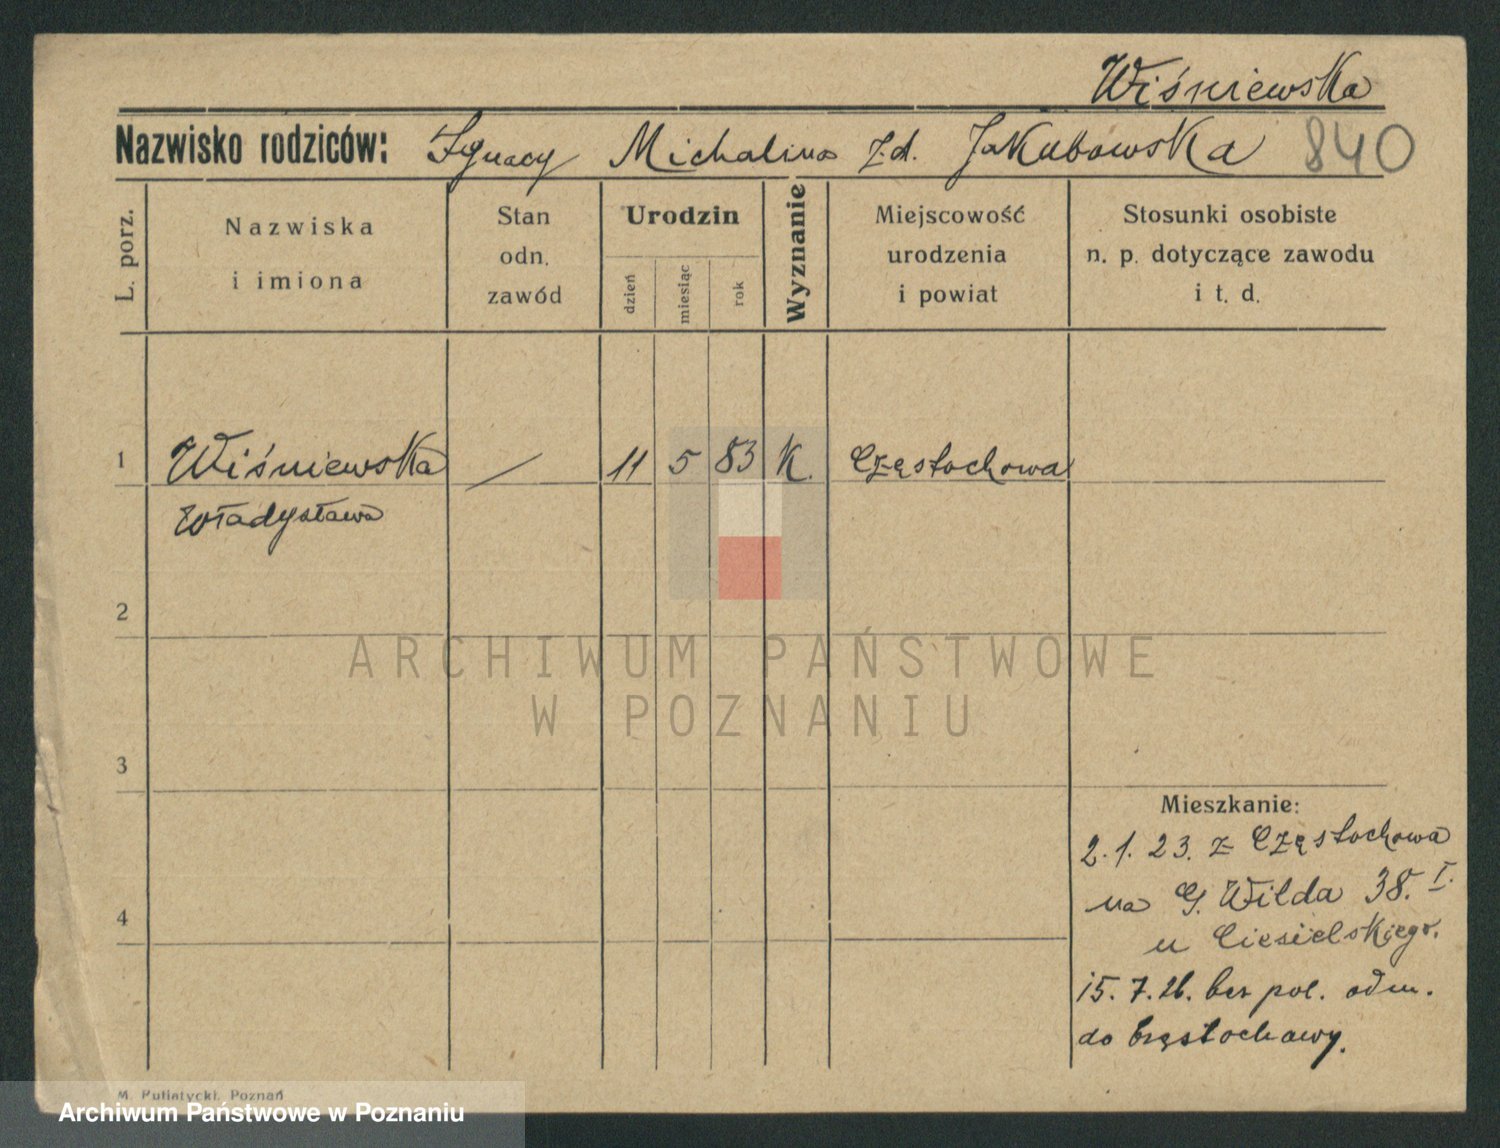 Wiśniewska
Nazwisko rodziców: Ignacy Michalina z d. Jakubowska 840
L. porz.
Nazwiska
i imiona
Stan
odn.
zawód
Urodzin
dzień
miesiąc
rok
Wyznanie
Miejscowość
urodzenia
i powiat
Stosunki osobiste
n. p. dotyczące zawodu
i t. d.
1 Wiśniewska — 11 5 83 K. Częstochowa
Władysława
2
ARCHIWUM PAŃSTWOWE
W POZNANIU
3
Mieszkanie:
2.1.23. z Częstochowa
na G. Wilda 38. I.
u Ciesielskiego.
4
15.7.26. bez pol. odm.
do Częstochowy.
M. Putiatycki, Poznań
Archiwum Państwowe w Poznaniu